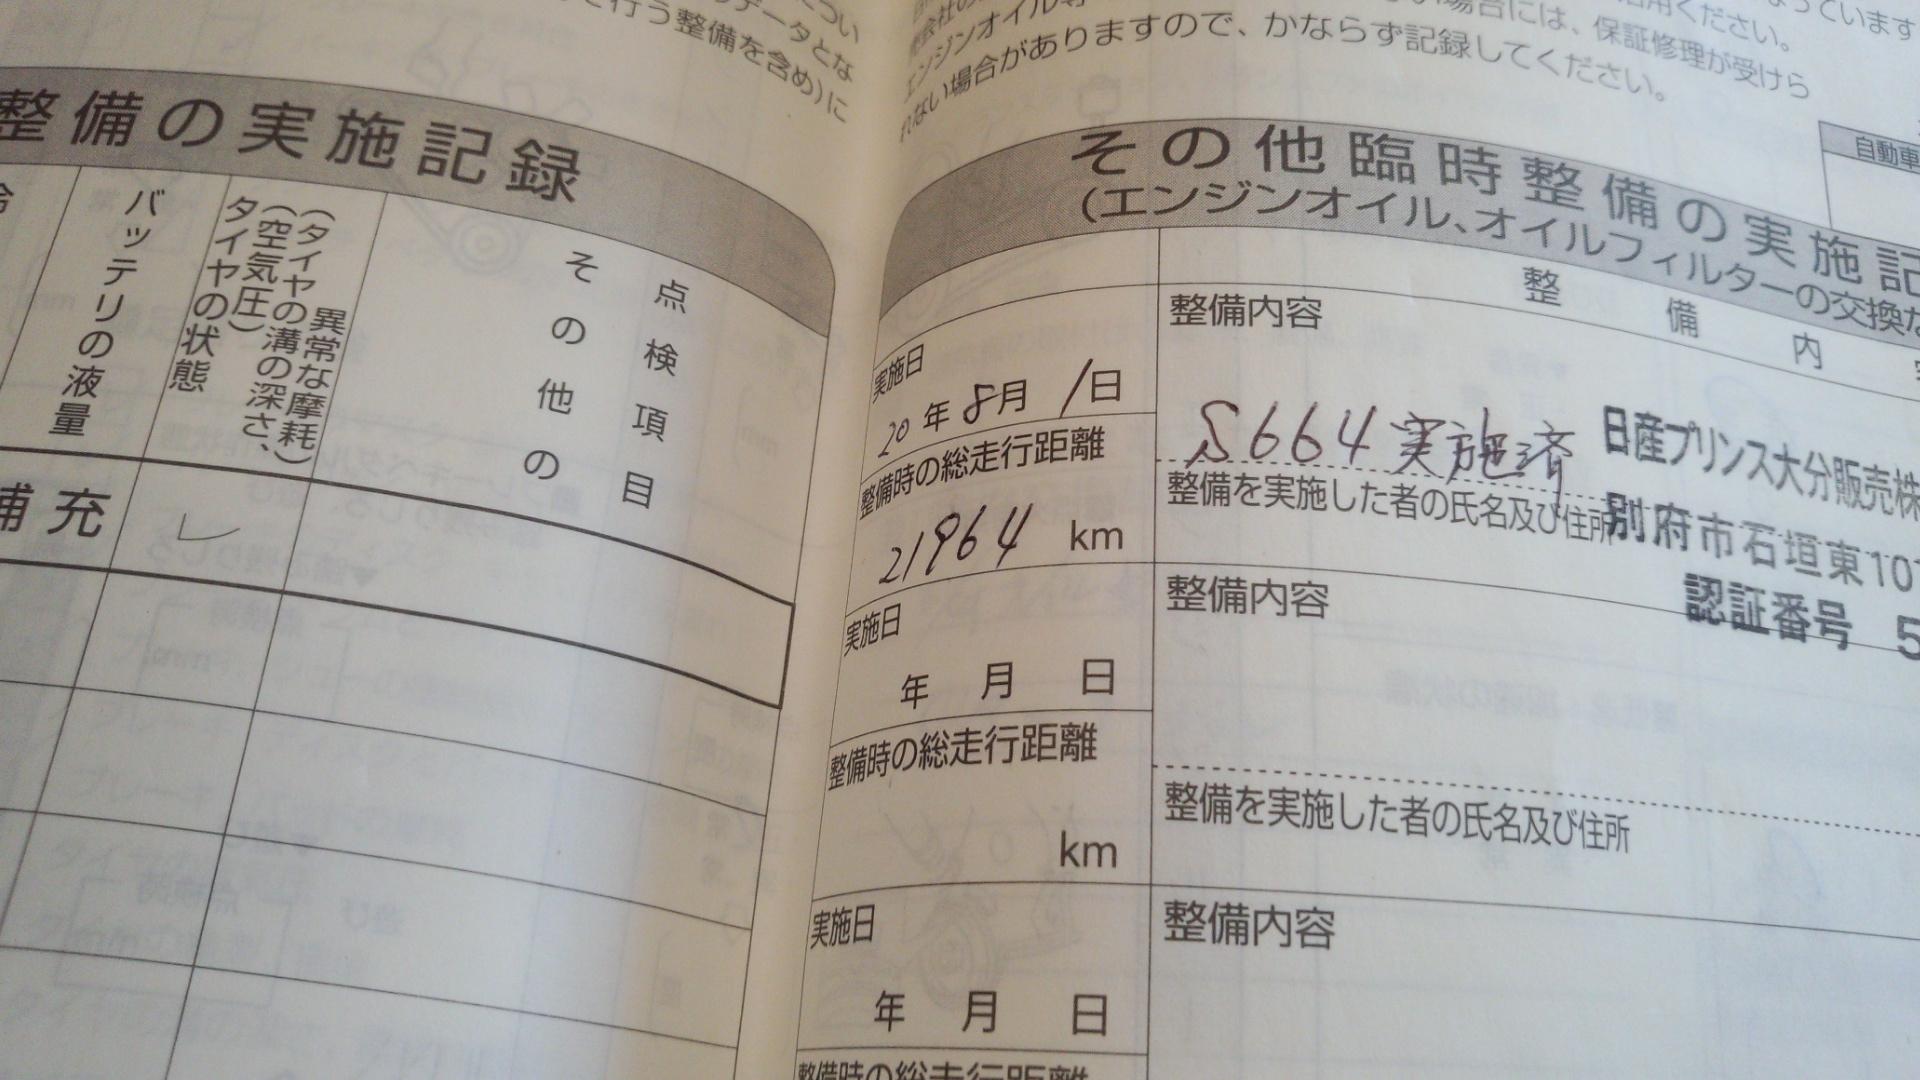 につい
データとな
行う整備を含め)に
整備の実施記録
バッテリの液量
タイヤの状態
(空気圧)
(タイヤの溝の深さ、
異常な摩耗)
その他の
点検項目
補充
エンジンオイル等
場合には、保証修理が受けら
れない場合がありますので、かならず記録してください。
自動車
その他臨時整備の実施記
(エンジンオイル、オイルフィルターの交換な
整備内
実施日
20年8月1日
整備時の総走行距離
21964 km
整備内容
S664実施済
整備を実施した者の氏名及び住所
日産プリンス大分販売株
別府市石垣東10
認証番号 5
実施日
年 月 日
整備時の総走行距離
km
整備内容
整備を実施した者の氏名及び住所
実施日
年 月 日
整備時の総走行距離
整備内容